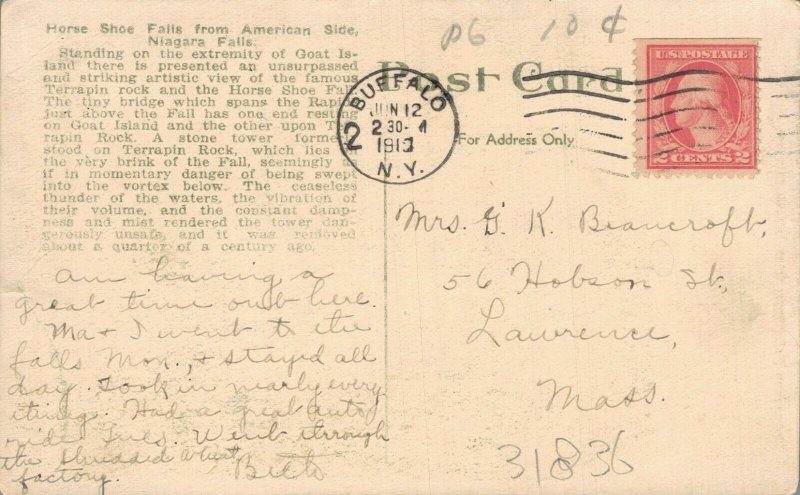 Horse Shoe Falls from American Side,
Niagara Falls.
Standing on the extremity of Goat Is-
land there is presented an unsurpassed
and striking artistic view of the famous
Terrapin rock and the Horse Shoe Fall.
The tiny bridge which spans the Rapid
just above the Fall has one end resting
on Goat Island and the other upon Ter-
rapin Rock. A stone tower formerly
stood on Terrapin Rock, which lies
the very brink of the Fall, seemingly as
if in momentary danger of being swept
into the vortex below. The ceaseless
thunder of the waters, the vibration of
their volume, and the constant damp-
ness and mist rendered the tower dan-
gerously unsafe, and it was removed
about a quarter of a century ago.
am having a
great time out here.
Ma + I went to the
falls Mon., + stayed all
day. Took in nearly every
thing. Had a great auto
ride Tues. Went through
the shredded wheat
factory.
Post Card
For Address Only
BUFFALO
JUN 12
2 30
191
N.Y.
2
U.S. POSTAGE
2 CENTS 2
10 ¢
Mrs. G. K. Beancroft,
56 Hobson St,
Lawrence,
Mass.
31836